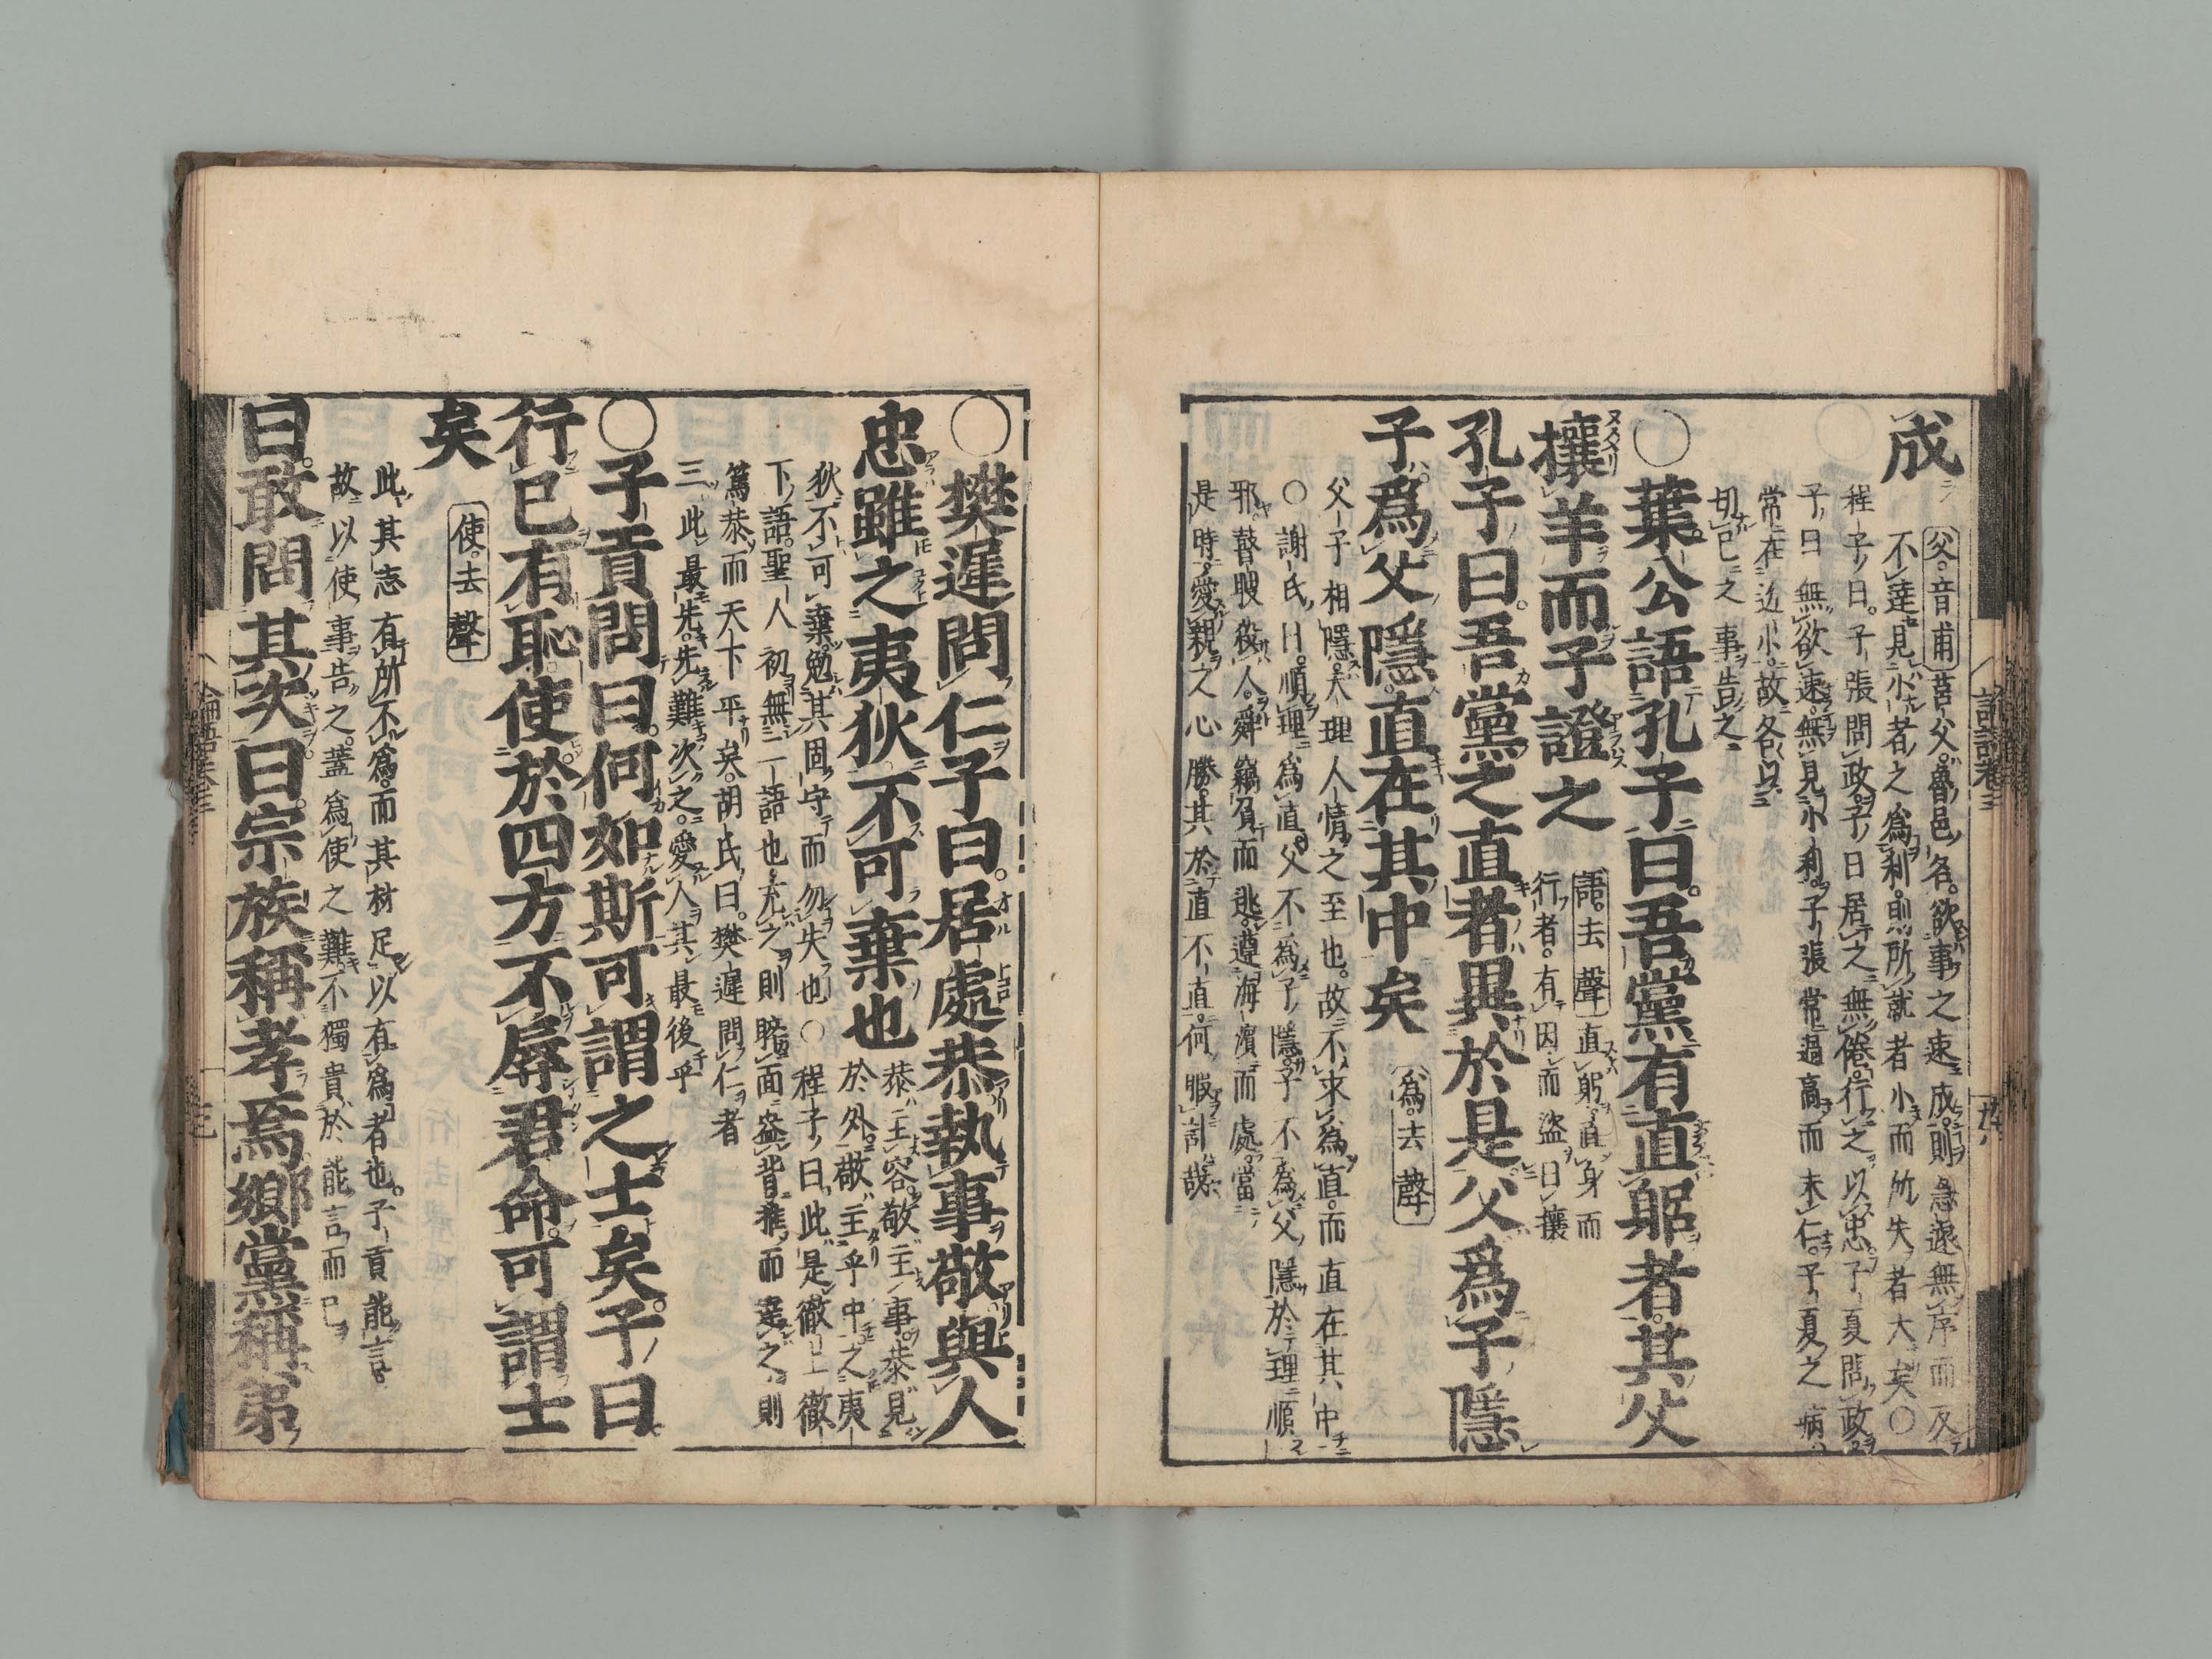 成
父音甫莒父魯邑名欲事之速成則急遽無序而反
不達見小者之爲利則所就者小而所失者大矣○
程子曰子張問政子曰居之無倦行之以忠子夏問政
子曰無欲速無見小利子張常過高而未仁子夏之病
常在近小故各以
切己之事告之
○葉公語孔子曰吾黨有直躬者其父
攘羊而子證之
語去聲直躬直身而
行者有因而盜曰攘
孔子曰吾黨之直者異於是父爲子隱
子爲父隱直在其中矣
爲去聲
父子相隱天理人情之至也故不求爲直而直在其中
○謝氏曰順理爲直父不爲子隱子不爲父隱於理順
邪瞽瞍殺人舜竊負而逃遵海濱而處當
是時愛親之心勝其於直不直何暇計哉
○樊遲問仁子曰居處恭執事敬與人
忠雖之夷狄不可棄也
恭主容敬主事恭見
於外敬主乎中之夷
狄不可棄勉其固守而勿失也○程子曰此是徹上徹
下語聖人初無二語也充之則睟面盎背推而達之則
篤恭而天下平矣胡氏曰樊遲問仁者
三此最先先難次之愛人其最後乎
○子貢問曰何如斯可謂之士矣子曰
行己有恥使於四方不辱君命可謂士
矣
使去聲
此其志有所不爲而其材足以有爲者也子貢能言
故以使事告之蓋爲使之難不獨貴於能言而已
曰敢問其次曰宗族稱孝焉鄉黨稱弟
論語卷三